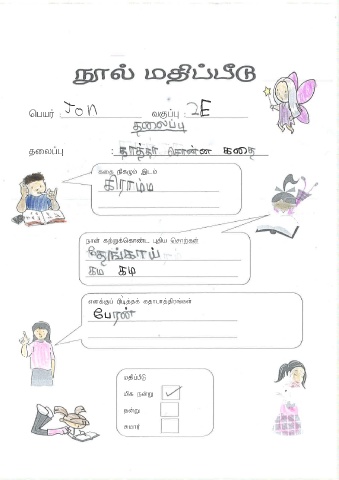 நூல் மதிப்பீடு
பெயர் : Jon வகுப்பு : 2E
தலைப்பு
தலைப்பு : தாத்தா சொன்ன கதை
கதை நிகழும் இடம்
கிராம்ம
நான் கற்றுக்கொண்ட புதிய சொற்கள்
தேங்காய்
கம கடி
எனக்குப் பிடித்தக் கதாபாத்திரங்கள்
பேரன்
மதிப்பீடு
மிக நன்று
நன்று
சுமார்